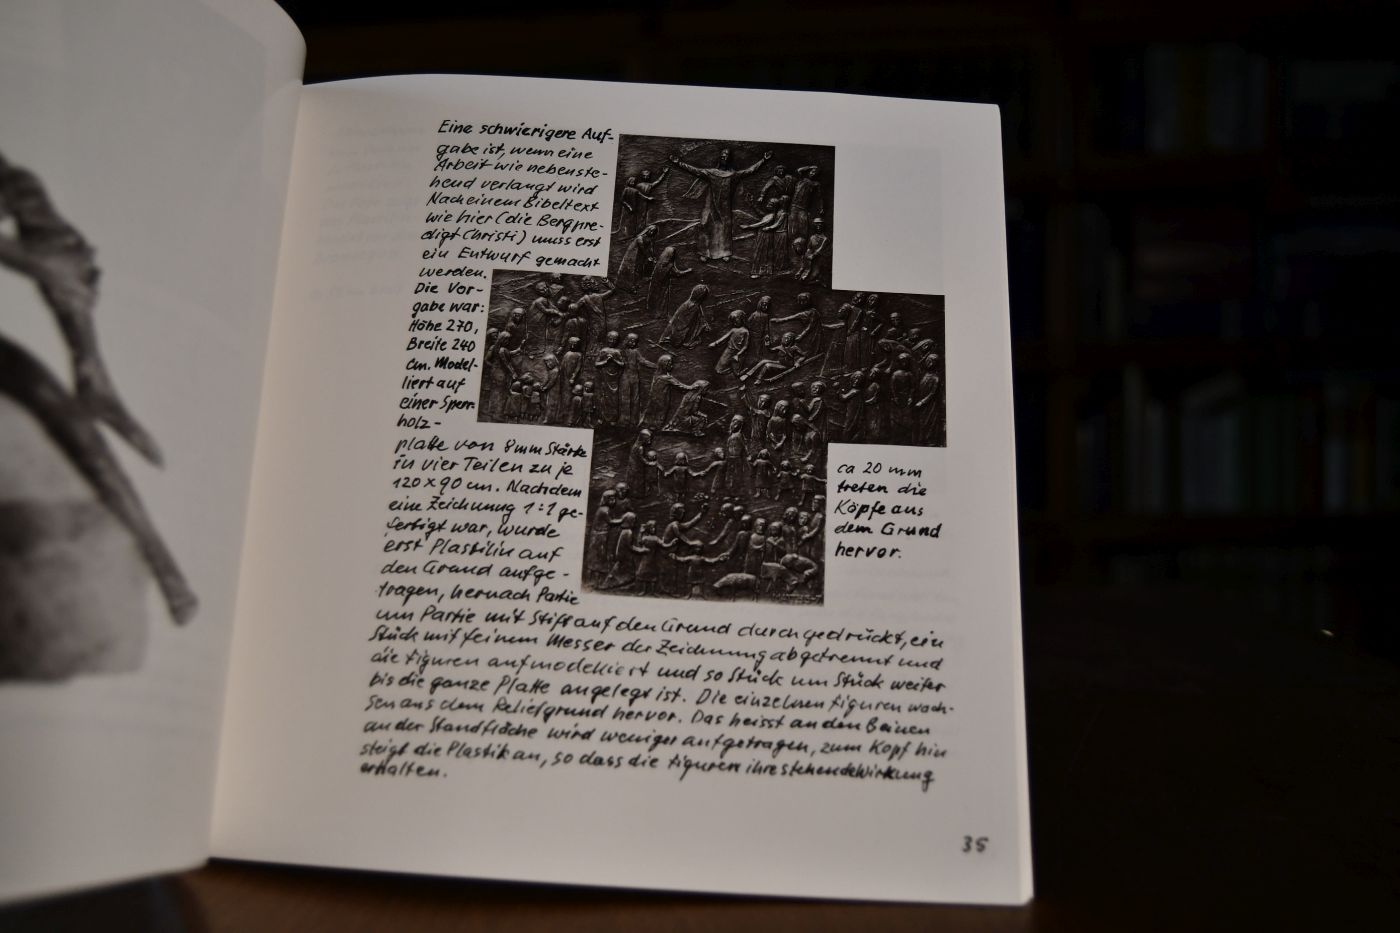 Eine schwierigere Auf-
gabe ist, wenn eine
Arbeit wie nebenste-
hend verlangt wird
Nach einem Bibeltext
wie hier (die Bergpre-
digt Christi) muss erst
ein Entwurf gemacht
werden.
Die Vor-
gabe war:
Höhe 270,
Breite 240
cm. Model-
liert auf
einer Sperr-
holz-
platte von 8mm Stärke
in vier Teilen zu je
120 x 90 cm. Nachdem
eine Zeichnung 1:1 ge-
fertigt war, wurde
erst Plastilin auf
den Grund aufge-
tragen, hernach Partie
um Partie mit Stift auf den Grund durchgedrückt, ein
Stück mit feinem Messer der Zeichnung abgetrennt und
die Figuren aufmodelliert und so Stück um Stück weiter
bis die ganze Platte angelegt ist. Die einzelnen Figuren wach-
sen aus dem Reliefgrund hervor. Das heisst an den Beinen
an der Standfläche wird weniger aufgetragen, zum Kopf hin
steigt die Plastik an, so dass die Figuren ihre stehende Wirkung
erhalten.
ca 20 mm
treten die
Köpfe aus
dem Grund
hervor.
35